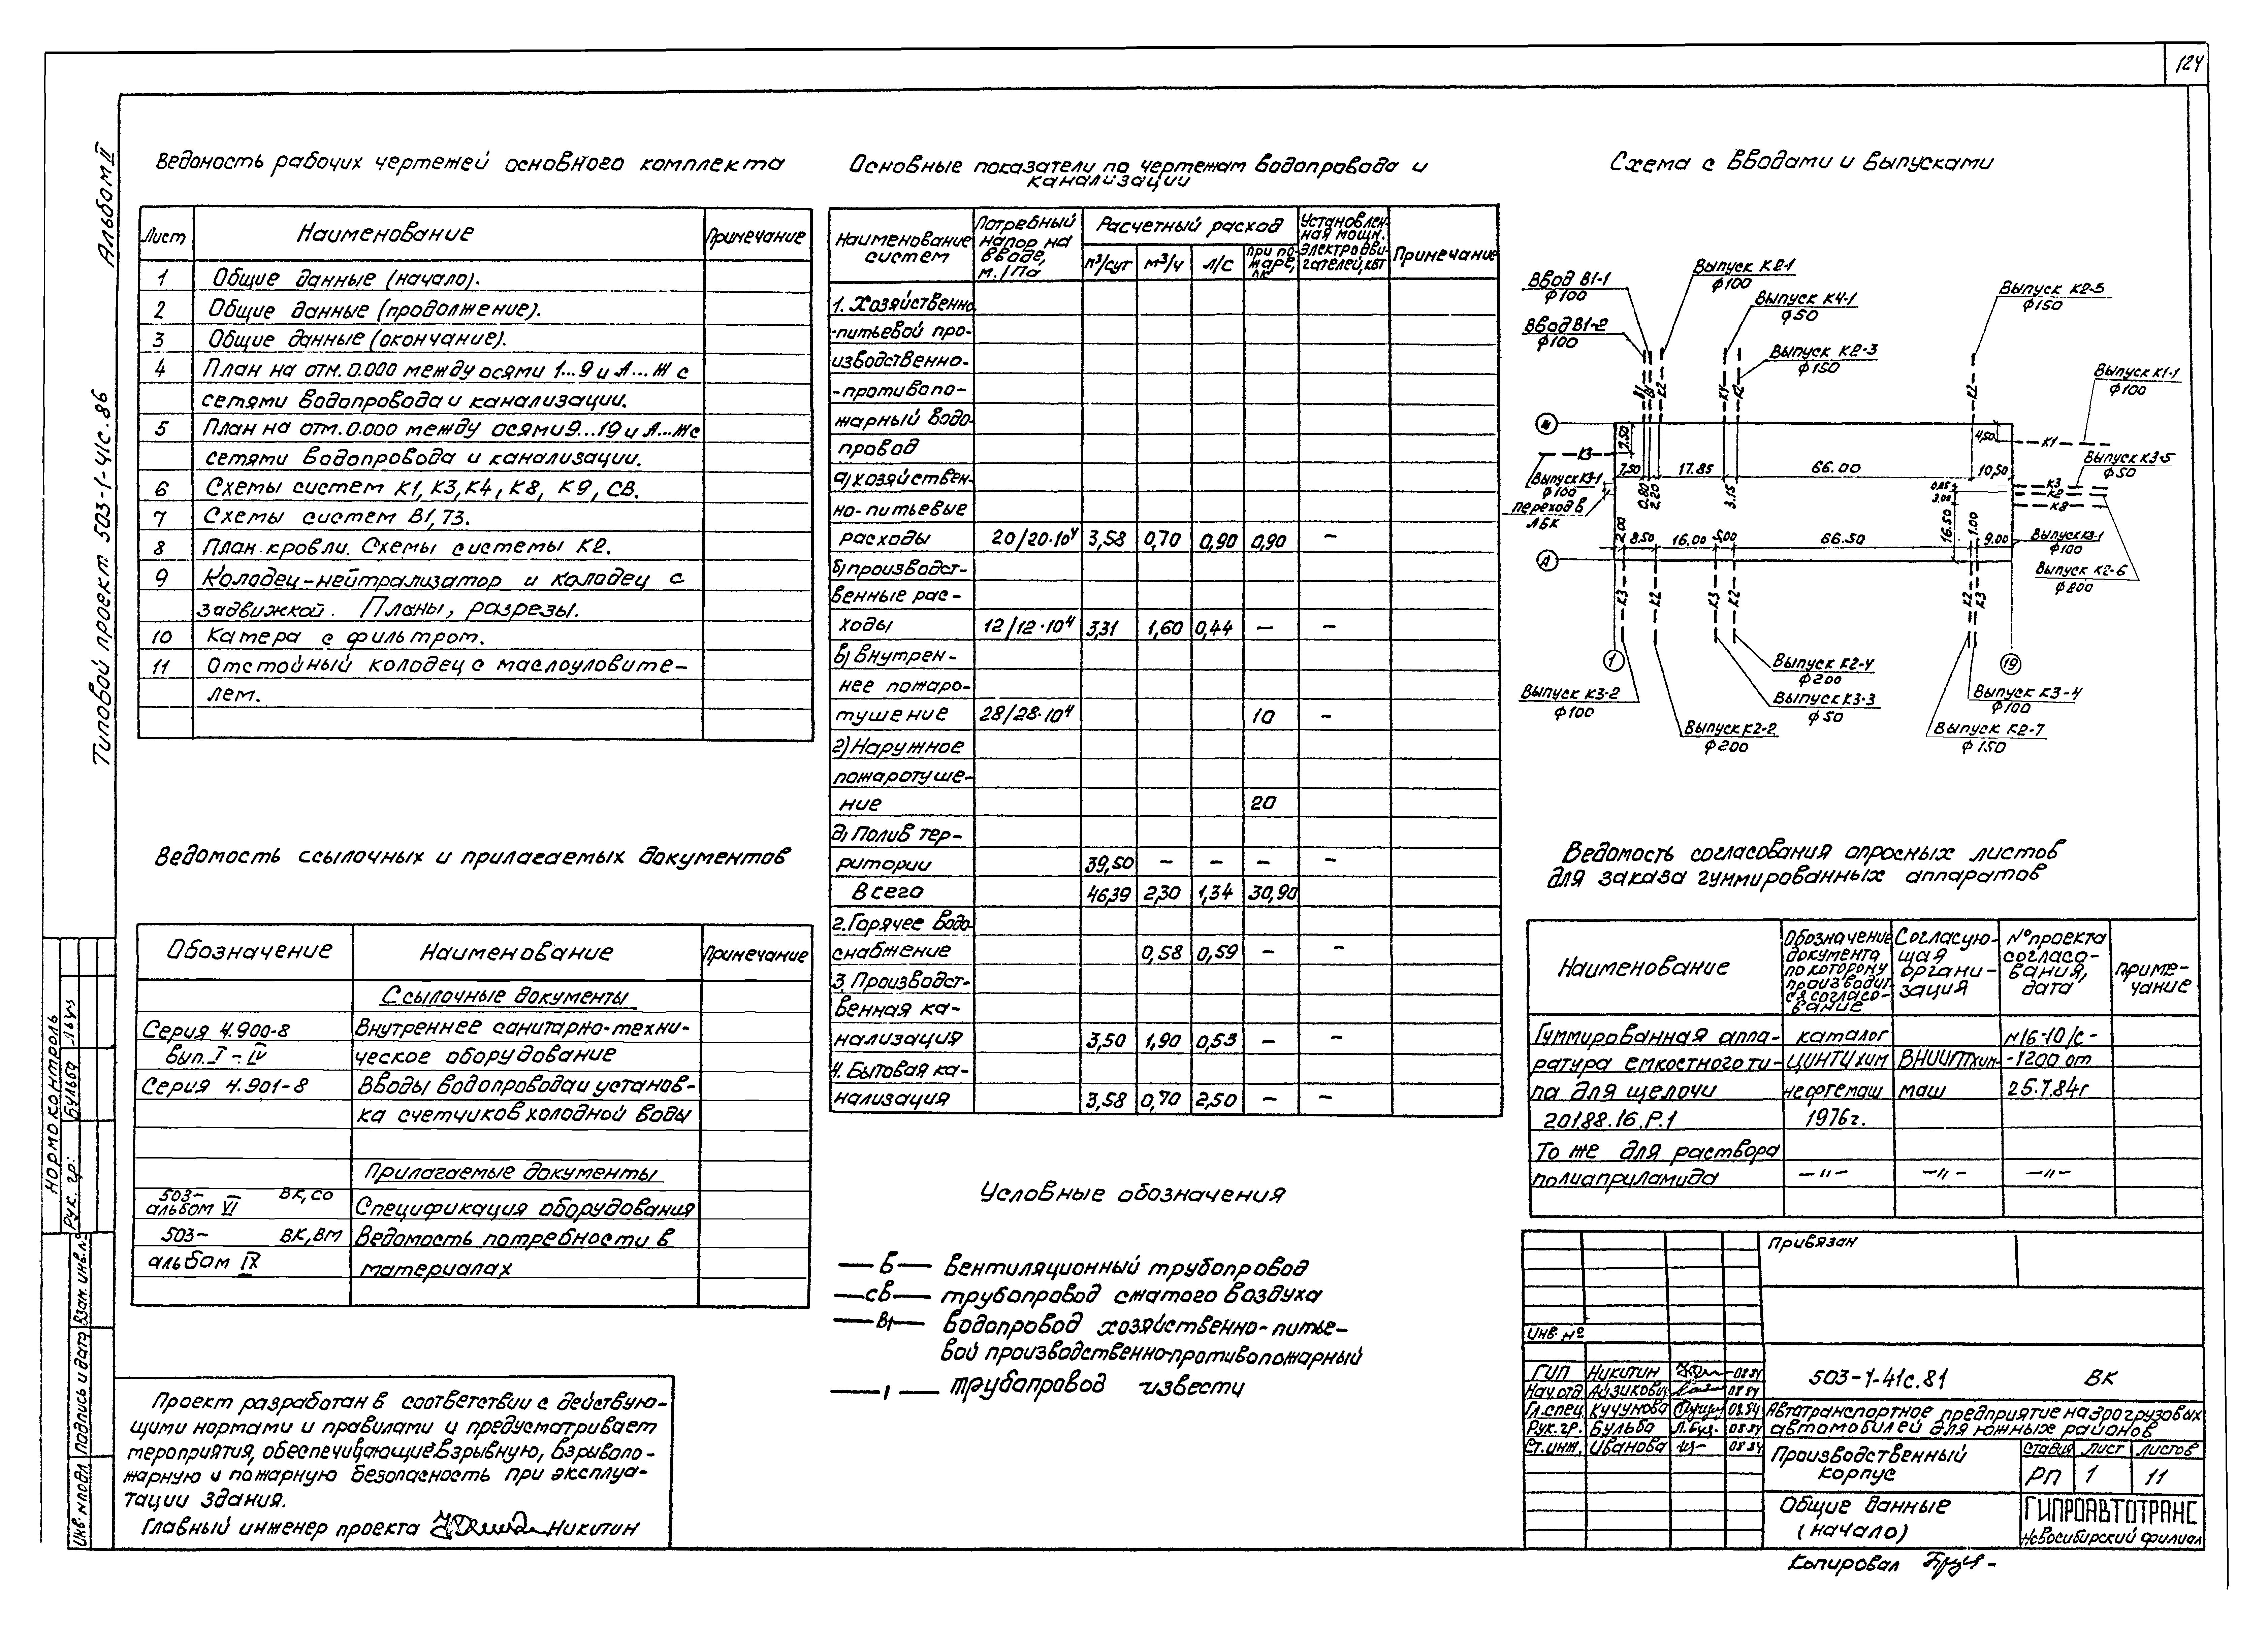 124
Альбом II
Типовой проект 503-1-41с.86
Ведомость рабочих чертежей основного комплекта
Лист Наименование Примечание
1 Общие данные (начало).
2 Общие данные (продолжение).
3 Общие данные (окончание).
4 План на отм. 0.000 между осями 1...9 и А...Ж с
сетями водопровода и канализации.
5 План на отм. 0.000 между осями 9...19 и А...Ж с
сетями водопровода и канализации.
6 Схемы систем К1, К3, К4, К8, К9, СВ.
7 Схемы систем В1, Т3.
8 План кровли. Схемы системы К2.
9 Колодец-нейтрализатор и колодец с
задвижкой. Планы, разрезы.
10 Катера с фильтром.
11 Отстойный колодец с маслоуловите-
лем.
Ведомость ссылочных и прилагаемых документов
Обозначение Наименование Примечание
Ссылочные документы
Серия 4.900-8 Внутреннее санитарно-техни-
вып. I-IV ческое оборудование
Серия 4.901-8 Вводы водопровода и установ-
ка счетчиков холодной воды
Прилагаемые документы
503- ВК, СО
альбом VI Спецификация оборудования
503- ВК, ВМ Ведомость потребности в
альбом IX материалах
Проект разработан в соответствии с действую-
щими нормами и правилами и предусматривает
мероприятия, обеспечивающие взрывную, взрывопо-
жарную и пожарную безопасность при эксплуа-
тации здания.
Главный инженер проекта Никитин
Основные показатели по чертежам водопровода и
канализации
Наименование систем
Потребный напор на вводе, м./Па
Расчетный расход
м³/сут м³/ч Л/С При пожаре, л/с
Установлен-
ная мощн.
электродви-
гателей, кВт
Примечание
1. Хозяйственно
-питьевой про-
изводственно-
-противопо-
жарный водо-
провод
а) хозяйствен-
но-питьевые
расходы 20/20·10⁴ 3,58 0,70 0,90 0,90 –
б) производст-
венные рас-
ходы 12/12·10⁴ 3,31 1,60 0,44 – –
в) внутрен-
нее пожаро-
тушение 28/28·10⁴ 10 –
г) Наружное
пожаротуше-
ние 20
д) Полив тер-
ритории 39,50 – – – –
Всего 46,39 2,30 1,34 30,90
2. Горячее водо-
снабжение 0,58 0,59 – –
3. Производст-
венная ка-
нализация 3,50 1,90 0,53 – –
4. Бытовая ка-
нализация 3,58 0,70 2,50 – –
Условные обозначения
— В — Вентиляционный трубопровод
— СВ — трубопровод сжатого воздуха
— В1 — Водопровод хозяйственно-питье-
вой производственно-противопожарный
— 1 — трубапровод извести
Схема с вводами и выпусками
Ввод В1-1
ф100
Ввод В1-2
ф100
Выпуск К2-1
ф100
Выпуск К4-1
ф50
Выпуск К2-3
ф150
Выпуск К2-5
ф150
Выпуск К1-1
ф100
Выпуск К3-5
ф50
В1 В1 К2 К4 К2 К2
Ж 7.50 4,50 К1
К3
7,50 17.85 66.00 10,50
Выпуск К3-1
ф100
переход в
ЛБК
0.80 2.20 3.15 0,85 3.00
К3
К2
К8
2.00 8,50 16.00 5,00 66.50 16.50 1.00 9.00
А
Выпуск К3-1
ф100
Выпуск К2-6
ф200
К3 К2 К3 К2 К2 К3
1 19
Выпуск К3-2
ф100
Выпуск К2-4
ф200
Выпуск К3-3
ф50
Выпуск К2-2
ф200
Выпуск К3-4
ф100
Выпуск К2-7
ф150
Ведомость согласования опросных листов
для заказа гуммированных аппаратов
Наименование
Обозначение
документа
по которому
производит-
ся согласо-
вание
Согласую-
щая
органи-
зация
№ проекта
согласо-
вания,
дата
приме-
чание
Гуммированная аппа- каталог №16-10/с-
ратура емкостного ти- ЦИНТИхим ВНИИПТхим- -1200 от
па для щелочи нефтемаш маш 25.7.84г
201.88.16.Р.1 1976г.
То же для раствора
полиаприламида —"— —"— —"—
Привязан
Инв. №
ГИП Никитин 08.84
Нач.отд Айзикович 08.84
Гл.спец Кучумова 08.84
Рук.гр. Бульба 08.84
Ст.инж. Иванова 08.84
503-1-41с.81 ВК
Автотранспортное предприятие на 300 грузовых
автомобилей для южных районов
Производственный
корпус
Стадия Лист Листов
РП 1 11
Общие данные
(начало)
ГИПРОАВТОТРАНС
Новосибирский филиал
Копировал
Нормоконтроль
Рук. гр: Бульба
Инв. № подл. Подпись и дата Взам. инв. №